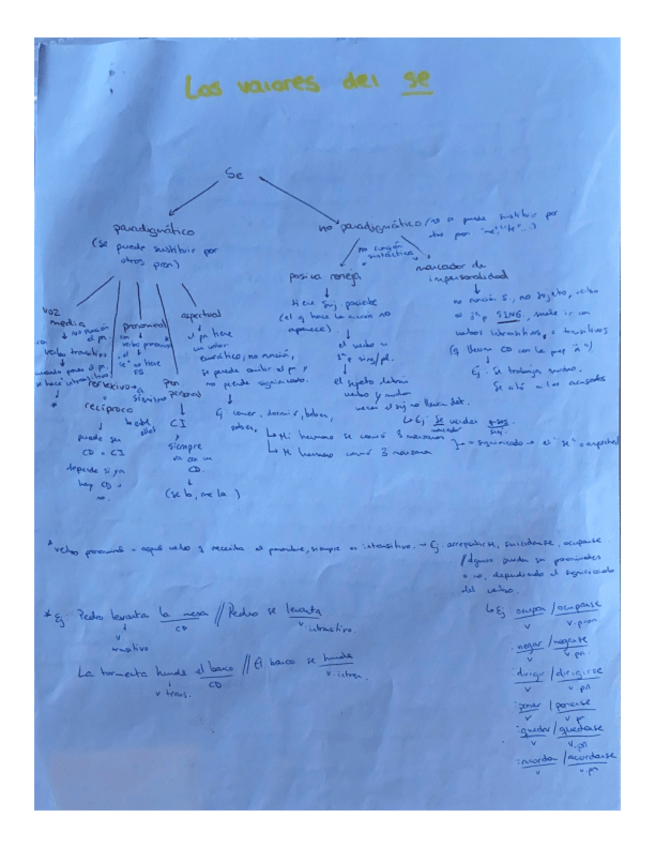 Los valores del se
Se
paradigmático
(se puede sustituir por
otros pron)
no paradigmático (no se puede sustituir por
otro pron "me", "te"...)
no función
sintáctica
voz
media
no función
el pn.
verbo transitivo
cuando pasa a pn.
se hace intransitivo
*
reflexivo o
recíproco
puede ser
CD o CI
depende si ya
hay CD o
no.
pronominal
verbo pronominal
*
aspectual
el pn tiene
un valor
enfático, no función,
se puede omitir el pn y
no pierde significado.
Ej comer, dormir, beber,
saber,
Mi hermano se comió 3 manzanas
Mi hermano comió 3 manzanas
= significado → el "se" = aspectual
Pron
personal
CI
siempre
va con un
CD.
(se lo, me la)
pasiva refleja
tiene suj paciente
(el q hace la acción no
aparece)
el verbo en
3ª p sing/pl.
el sujeto detrás
verbo y muchas
veces el suj no lleva det.
Ej: Se venden
marcador suj
marcador de
impersonalidad
no función S., no sujeto, verbo
3ª p SING., suele ir con
verbos intransitivos, o transitivos
(q lleven CD con la prep "a")
Ej: Se trabaja mucho.
Se citó a los acusados
* verbo pronominal = aquel verbo q necesita el pronombre, siempre es intransitivo. → Ej. arrepentirse, suicidarse, ocuparse
/ algunos pueden ser pronominales
o no, dependiendo el significado
del verbo.
* Ej: Pedro levanta la mesa // Pedro se levanta
CD
v. intransitivo.
v
transitivo
La tormenta hunde el barco // El barco se hunde
v trans.
CD
v. intran.
Ej ocupar / ocuparse
v v.pron
: negar / negarse
v v.pn.
: dirigir / dirigirse
v v.pn
: poner / ponerse
v v.p
: quedar / quedarse
v v.pn
: acordar / acordarse
v v.pn